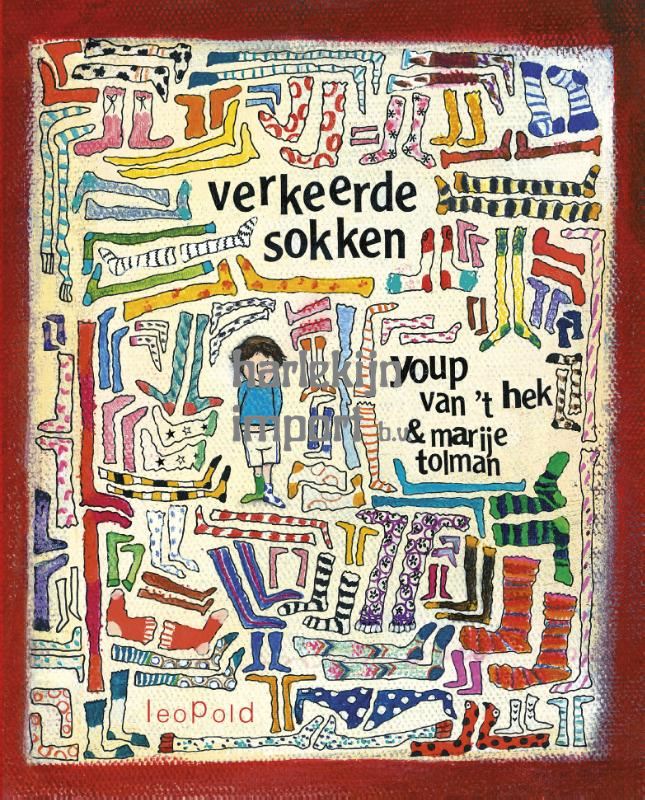 verkeerde
sokken
youp
van 't hek
& marije
tolman
harlekijn
import b.v.
leopold